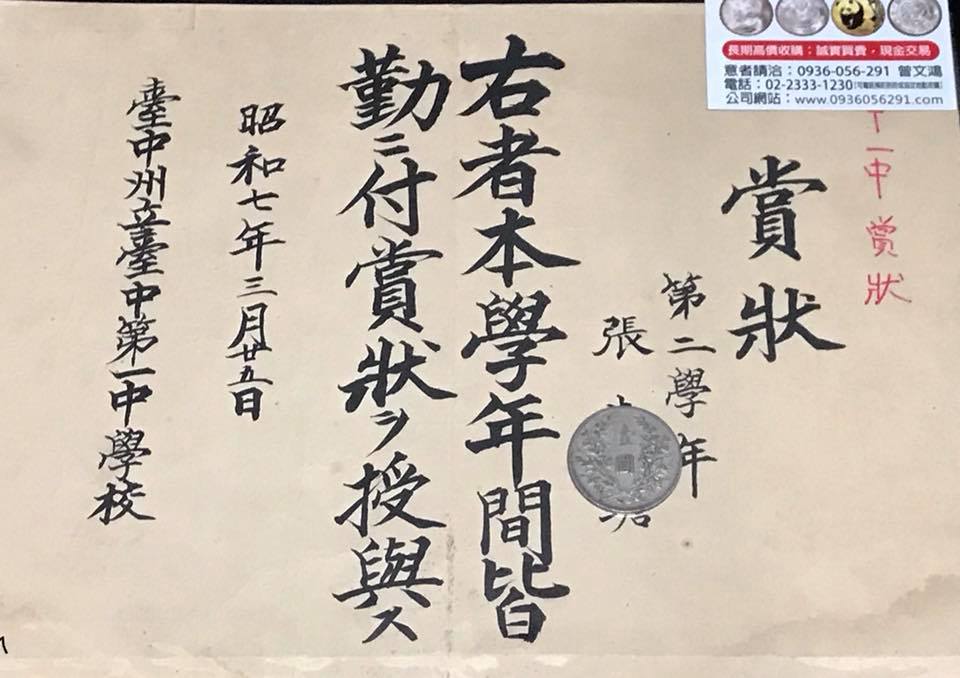 長期高價收購：誠實買賣，現金交易
意者請洽：0936-056-291 曾文鴻
電話：02-2333-1230
公司網站：www.0936056291.com
一中賞狀
賞狀
第二學年
張
壹圓
右者本學年間皆
勤ニ付賞狀ヲ授與ス
昭和七年三月廿五日
臺中州立臺中第一中學校